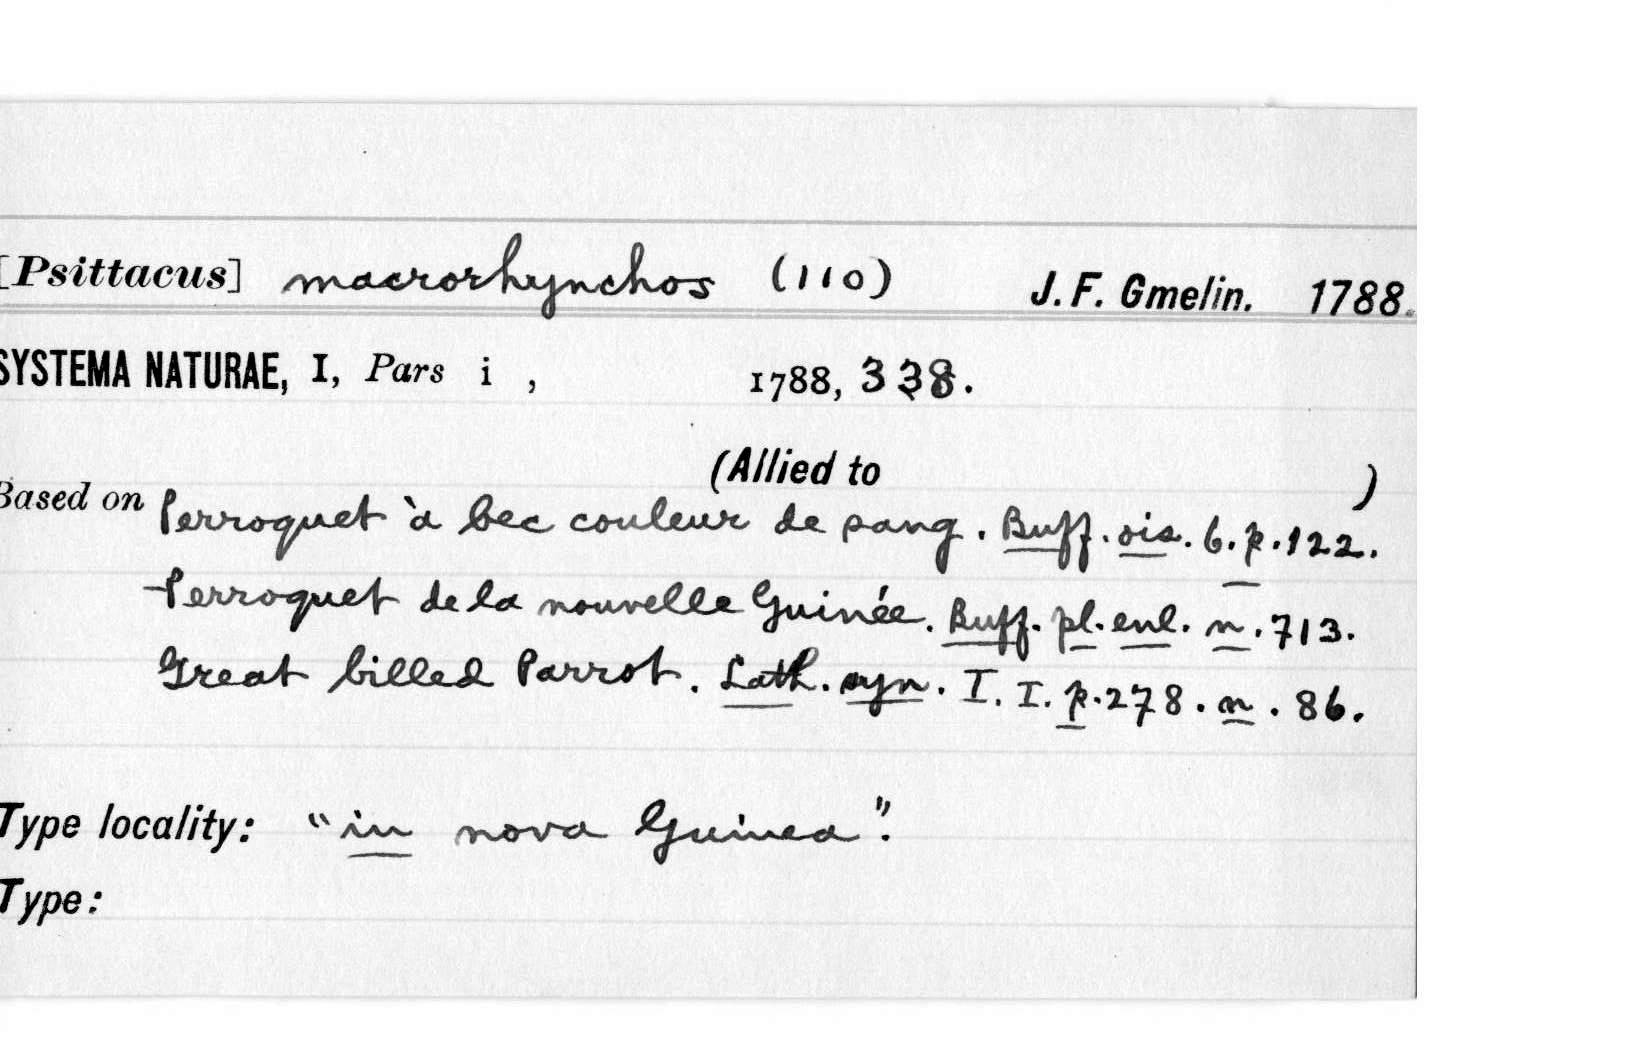 [Psittacus] macrorhynchos (110) J. F. Gmelin. 1788.
SYSTEMA NATURAE, I, Pars i , 1788, 338.
(Allied to )
Based on Perroquet à bec couleur de sang. Buff. ois. 6. p. 122.
Perroquet de la nouvelle Guinée. Buff. pl. enl. n. 713.
Great billed Parrot. Lath. syn. I. I. p. 278. n. 86.
Type locality: "in nova Guinea".
Type: